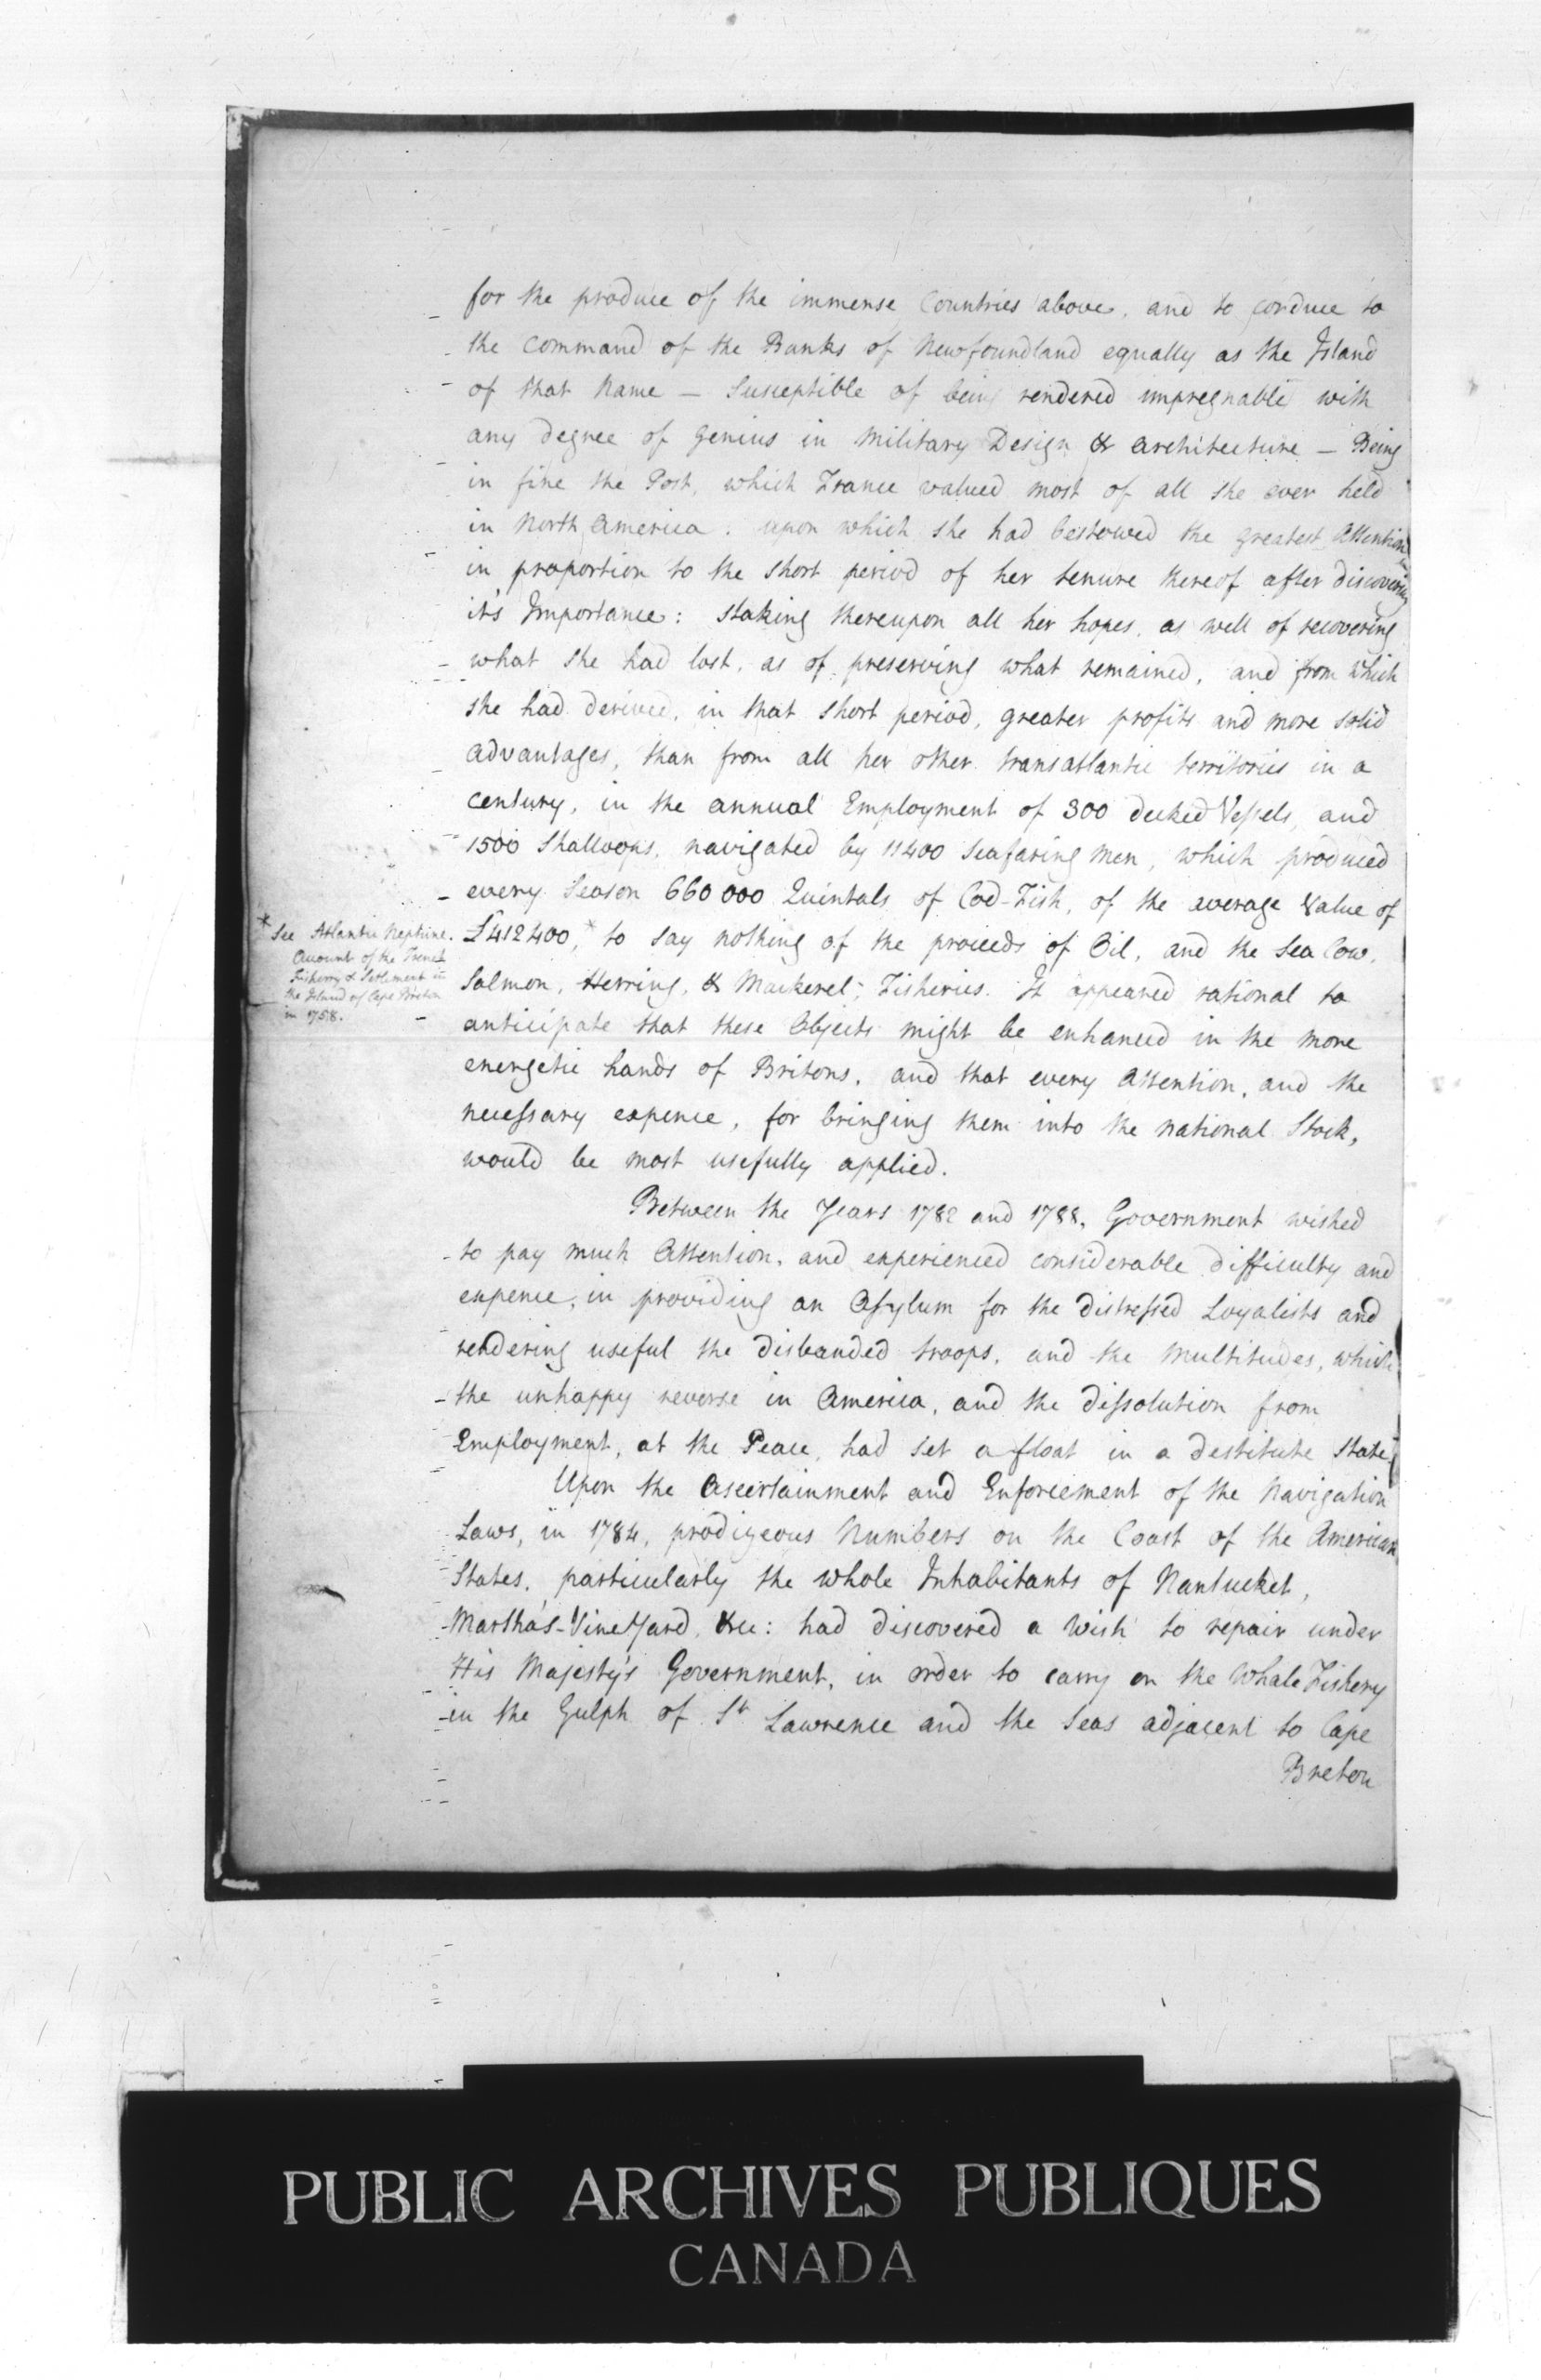 for the produce of the immense Countries above, and to conduce to
the Command of the Banks of Newfoundland equally as the Island
of that Name — Susceptible of being rendered impregnable with
any degree of Genius in Military Design & Architecture — Being
in fine the Post, which France valued most of all she ever held
in North America. upon which she had bestowed the greatest Attention
in proportion to the short period of her tenure thereof after discovering
it's Importance: staking thereupon all her hopes, as well of recovering
what she had lost, as of preserving what remained, and from which
she had derived, in that short period, greater profits and more solid
advantages, than from all her other transatlantic territories in a
century, in the annual Employment of 300 decked Vessels, and
1500 Shalloops, navigated by 11400 Seafaring Men, which produced
every Season 660 000 Quintals of Cod-Fish, of the average Value of
£412400,* to say nothing of the proceeds of Oil, and the Sea Cow,
Salmon, Herring, & Mackerel; Fisheries. It appeared rational to
anticipate that these Objects might be enhanced in the more
energetic hands of Britons, and that every Attention, and the
necessary expence, for bringing them into the national Stock,
would be most usefully applied.
* See Atlantic Neptune.
Account of the French
Fishery & Settlement in
the Island of Cape Breton
in 1758.
Between the Years 1782 and 1788, Government wished
to pay much Attention, and experienced considerable difficulty and
expence, in providing an Asylum for the distressed Loyalists and
rendering useful the disbanded troops, and the Multitudes, which
the unhappy reverse in America, and the dissolution from
Employment, at the Peace, had set a float in a destitute state.
Upon the Ascertainment and Enforcement of the Navigation
Laws, in 1784, prodigeous Numbers on the Coast of the American
States, particularly the whole Inhabitants of Nantucket,
Martha's-VineYard, &cc: had discovered a Wish to repair under
His Majesty's Government, in order to carry on the Whale Fishery
in the Gulph of St Lawrence and the Seas adjacent to Cape
Breton
PUBLIC ARCHIVES PUBLIQUES
CANADA